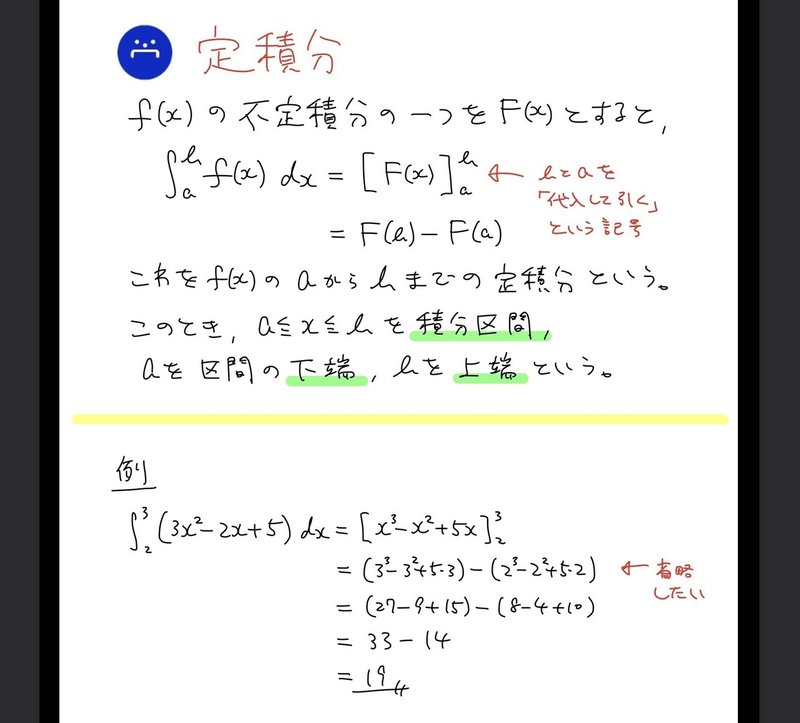 定積分
f(x)の不定積分の一つをF(x)とすると,
∫ₐᵇ f(x) dx = [F(x)]ₐᵇ ← bとaを
「代入して引く」
という記号
= F(b) − F(a)
これをf(x)のaからbまでの定積分という。
このとき, a≦x≦bを積分区間,
aを区間の下端, bを上端という。
例
∫₂³ (3x²−2x+5) dx = [x³−x²+5x]₂³
= (3³−3²+5·3) − (2³−2²+5·2) ← 省略
したい
= (27−9+15) − (8−4+10)
= 33 − 14
= 19